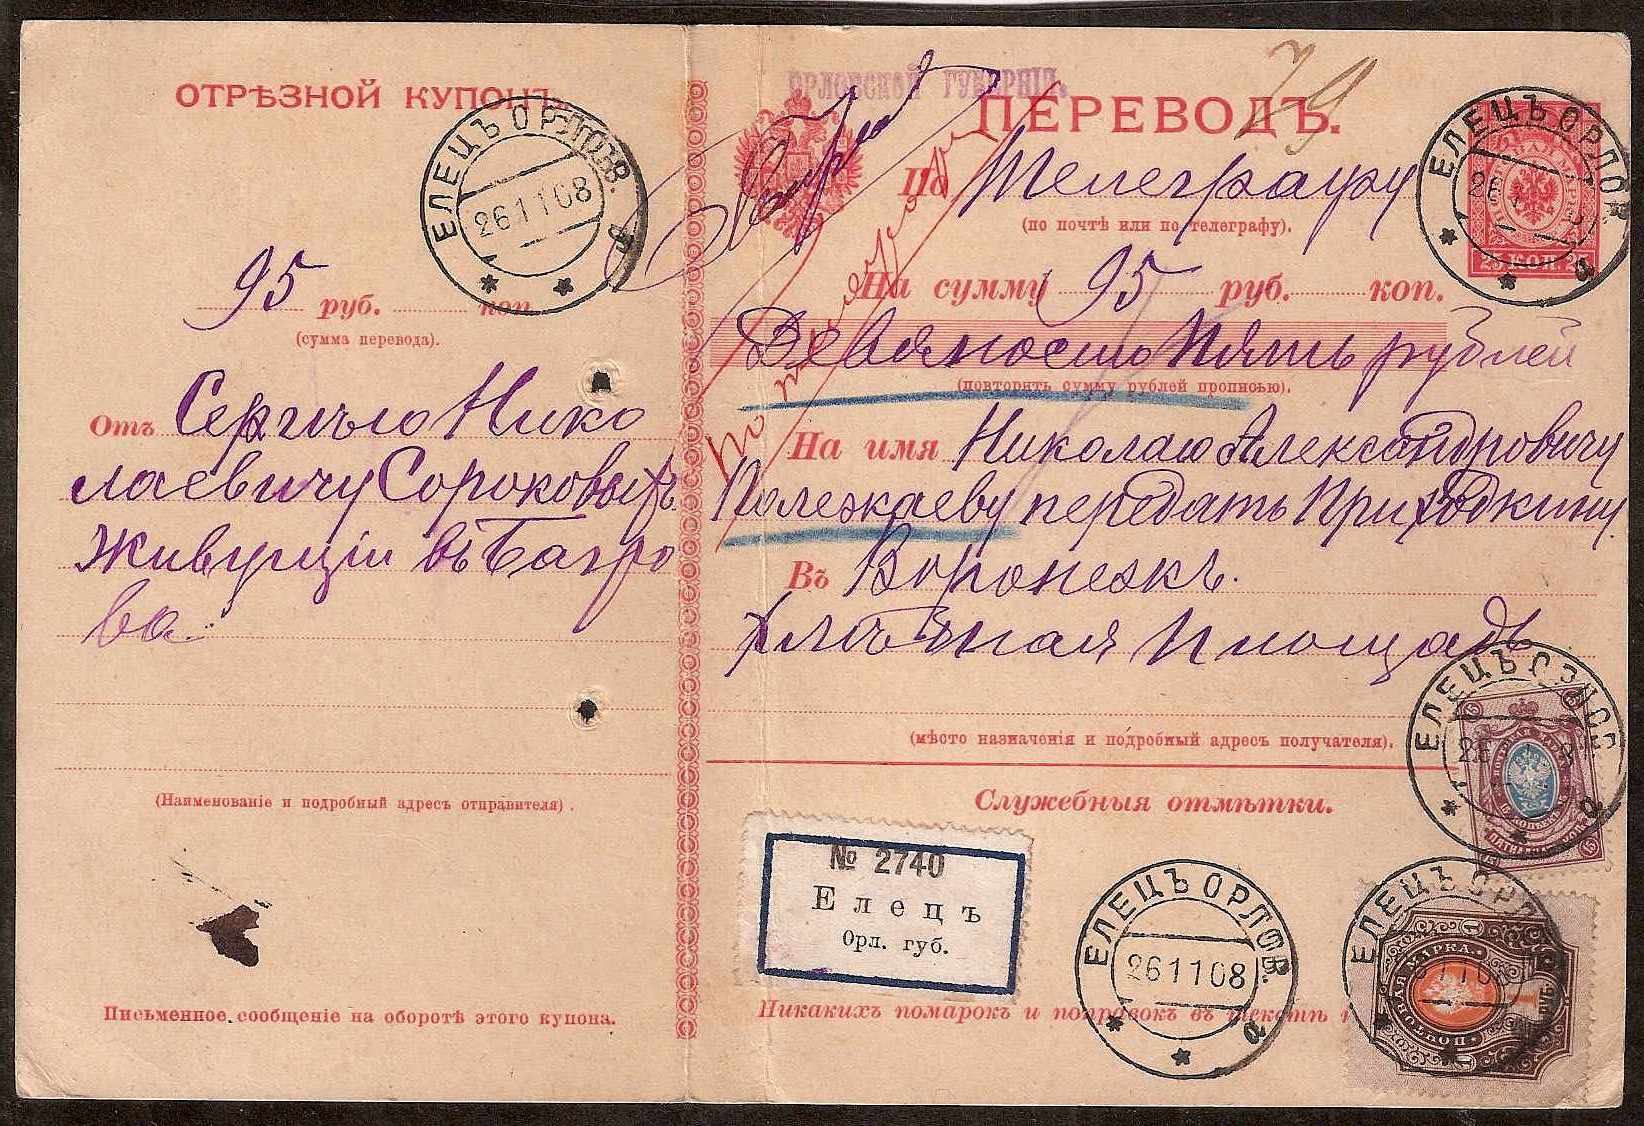 ОТРѢЗНОЙ КУПОНЪ
ЕЛЕЦЪ ОРЛОВ.
261108
а
95 руб. коп
(сумма перевода).
Отъ Сергѣю Нико
лаевичу
Живущій въ Багро
ва
(Наименованіе и подробный адресъ отправителя).
Письменное сообщеніе на оборотѣ этого купона.
ОРЛОВСКОЙ ГУБЕРНІИ.
79
ПЕРЕВОДЪ.
По Телеграфу
(по почтѣ или по телеграфу).
На сумму 95 руб. коп.
Девяносто Пять рублей
(повторить сумму рублей прописью).
На имя Николаю Александровичу
Полежаеву передать Приходкину
Въ Воронежъ.
Хлѣбная площадь
(мѣсто назначенія и подробный адресъ получателя).
Служебныя отмѣтки.
№ 2740
Елецъ
Орл. губ.
Никакихъ помарокъ и поправокъ въ текстѣ
ЕЛЕЦЪ ОРЛОВ.
261108
а
ЕЛЕЦЪ ОРЛОВ
а
25 КОП. 25
ЕЛЕЦЪ
а
15
ЕЛЕЦЪ ОРЛ
ПОЧТОВАЯ МАРКА
1 РУБ.